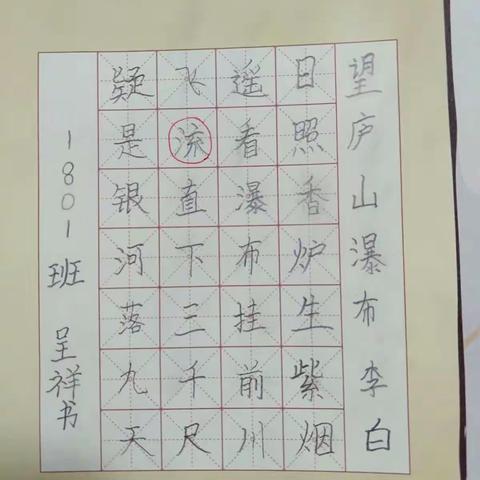 望庐山瀑布 李白
日照香炉生紫烟
遥看瀑布挂前川
飞流直下三千尺
疑是银河落九天
1801班 呈祥书